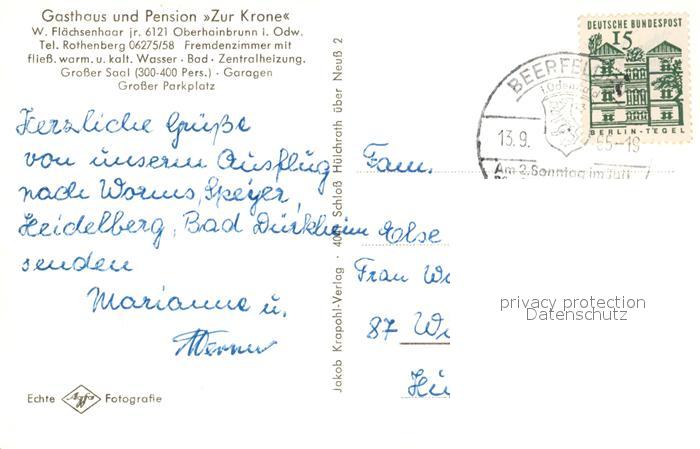 Gasthaus und Pension »Zur Krone«
W. Flächsenhaar jr. 6121 Oberhainbrunn i. Odw.
Tel. Rothenberg 06275/58 Fremdenzimmer mit
fließ. warm. u. kalt. Wasser · Bad · Zentralheizung.
Großer Saal (300-400 Pers.) · Garagen
Großer Parkplatz
Herzliche Grüße
von unserm Ausflug
nach Worms, Speyer,
Heidelberg, Bad Dürkheim
senden
Marianne u.
Werner
Echte Agfa Fotografie
Jakob Krapohl-Verlag · 401 Schloß Hülchrath über Neuß 2
DEUTSCHE BUNDESPOST
15
BERLIN-TEGEL
BEERFELDEN
13.9. 65-19
Am 2. Sonntag im Juli
Fam.
Else
Frau
87
privacy protection
Datenschutz